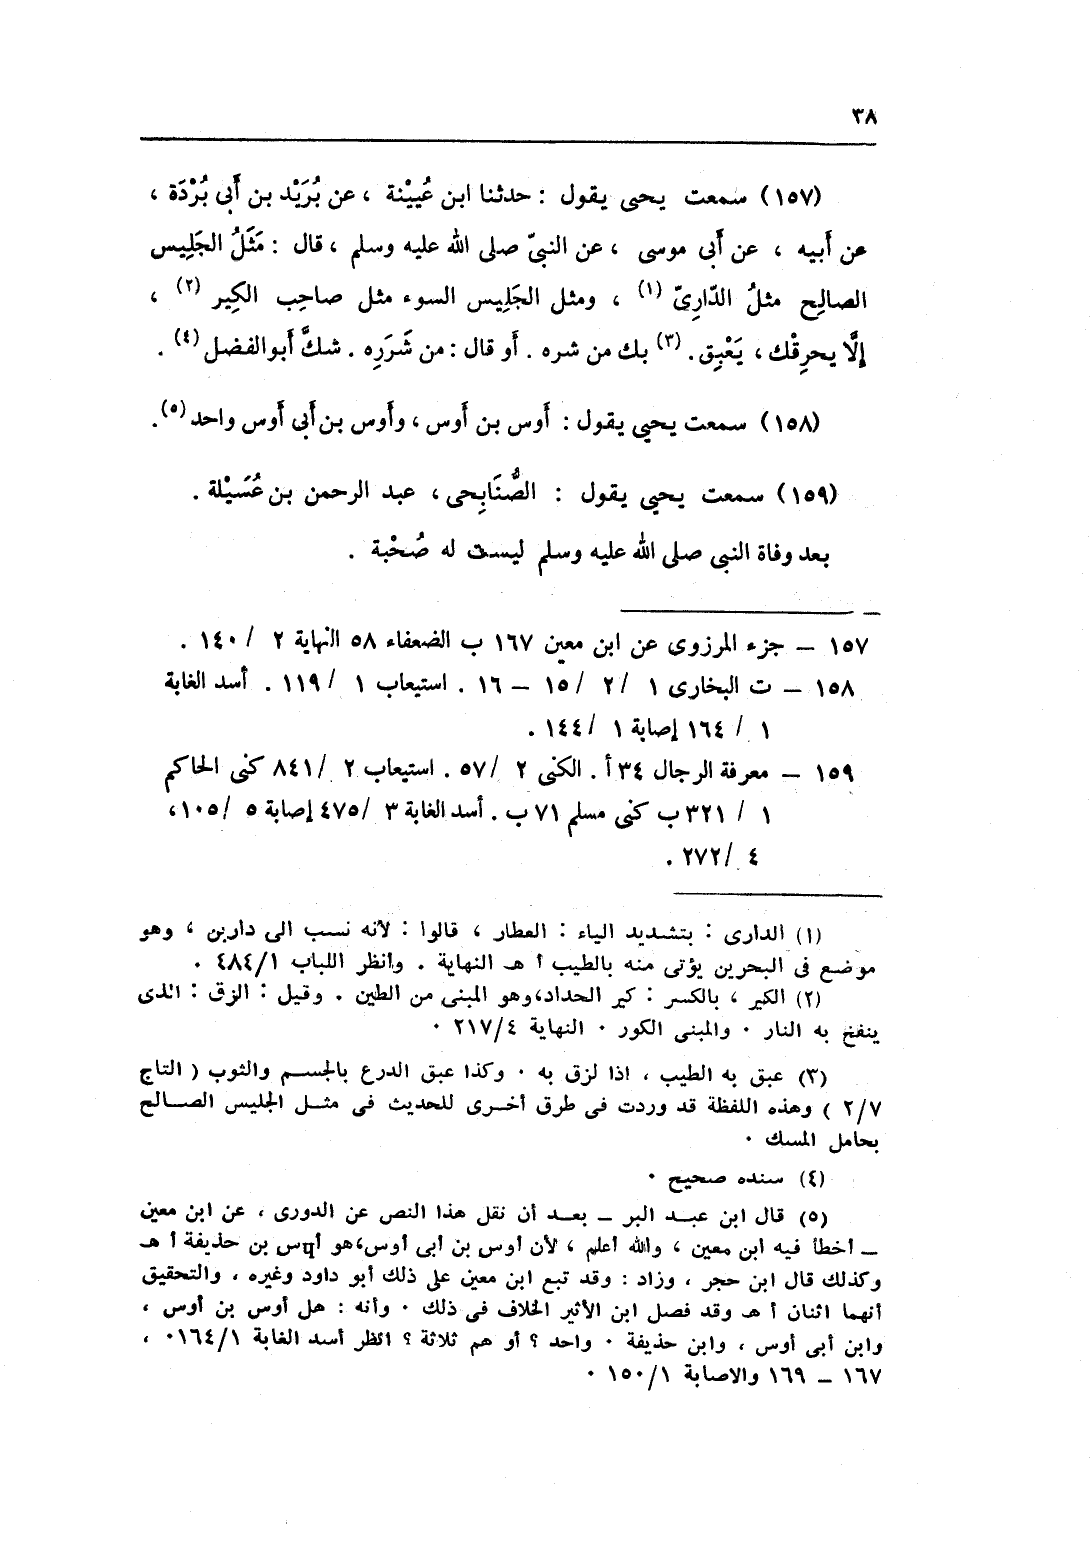 ٣٨
(١٥٧) سمعت يحيى يقول : حدثنا ابن عُيَيْنة ، عن بُرَيْد بن أَبى بُرْدَة ،
عن أَبيه ، عن أَبى موسى ، عن النبىّ صلى الله عليه وسلم ، قال : مَثَلُ الجَلِيس
الصالِح مثلُ الدّارِىّ (١) ، ومثل الجَلِيس السوء مثل صاحِب الكِير (٢) ،
إلَّا يحرِقْك ، يَعْبِق. (٣) بك من شره . أو قال : من شَرَرِه . شكَّ أبوالفضل (٤) .
(١٥٨) سمعت يحيى يقول : أَوس بن أَوس ، وأَوس بن أَبى أَوس واحد (٥).
(١٥٩) سمعت يحيى يقول : الصُّنَابِحى ، عبد الرحمن بن عُسَيْلة .
بعد وفاة النبى صلى الله عليه وسلم ليست له صُحْبة .
١٥٧ – جزء المرزوى عن ابن معين ١٦٧ ب الضعفاء ٥٨ النهاية ٢ / ١٤٠ .
١٥٨ – ت البخارى ١ / ٢ / ١٥ – ١٦ . استيعاب ١ / ١١٩ . أسد الغابة
١ / ١٦٤ إصابة ١ / ١٤٤ .
١٥٩ – معرفة الرجال ٣٤ أ . الكنى ٢ / ٥٧ . استيعاب ٢ / ٨٤١ كنى الحاكم
١ / ٣٢١ ب كنى مسلم ٧١ ب . أسد الغابة ٣ / ٤٧٥ إصابة ٥ / ١٠٥،
٤ / ٢٧٢ .
(١) الدارى : بتشديد الياء : العطار ، قالوا : لأنه نسب الى دارين ، وهو
موضع فى البحرين يؤتى منه بالطيب أ هـ النهاية . وانظر اللباب ٤٨٤/١ .
(٢) الكير ، بالكسر : كير الحداد،وهو المبنى من الطين . وقيل : الزق : الذى
ينفخ به النار . والمبنى الكور . النهاية ٢١٧/٤ .
(٣) عبق به الطيب ، اذا لزق به . وكذا عبق الدرع بالجسم والثوب ( التاج
٢/٧ ) وهذه اللفظة قد وردت فى طرق أخرى للحديث فى مثل الجليس الصالح
بحامل المسك .
(٤) سنده صحيح .
(٥) قال ابن عبد البر – بعد أن نقل هذا النص عن الدورى ، عن ابن معين
– أخطأ فيه ابن معين ، والله أعلم ، لأن أوس بن أبى أوس،هو أوس بن حذيفة أ هـ
وكذلك قال ابن حجر ، وزاد : وقد تبع ابن معين على ذلك أبو داود وغيره ، والتحقيق
أنهما اثنان أ هـ وقد فصل ابن الأثير الخلاف فى ذلك . وأنه : هل أوس بن أوس ،
وابن أبى أوس ، وابن حذيفة . واحد ؟ أو هم ثلاثة ؟ انظر أسد الغابة ١٦٤/١. ،
١٦٧ – ١٦٩ والاصابة ١٥٠/١ .